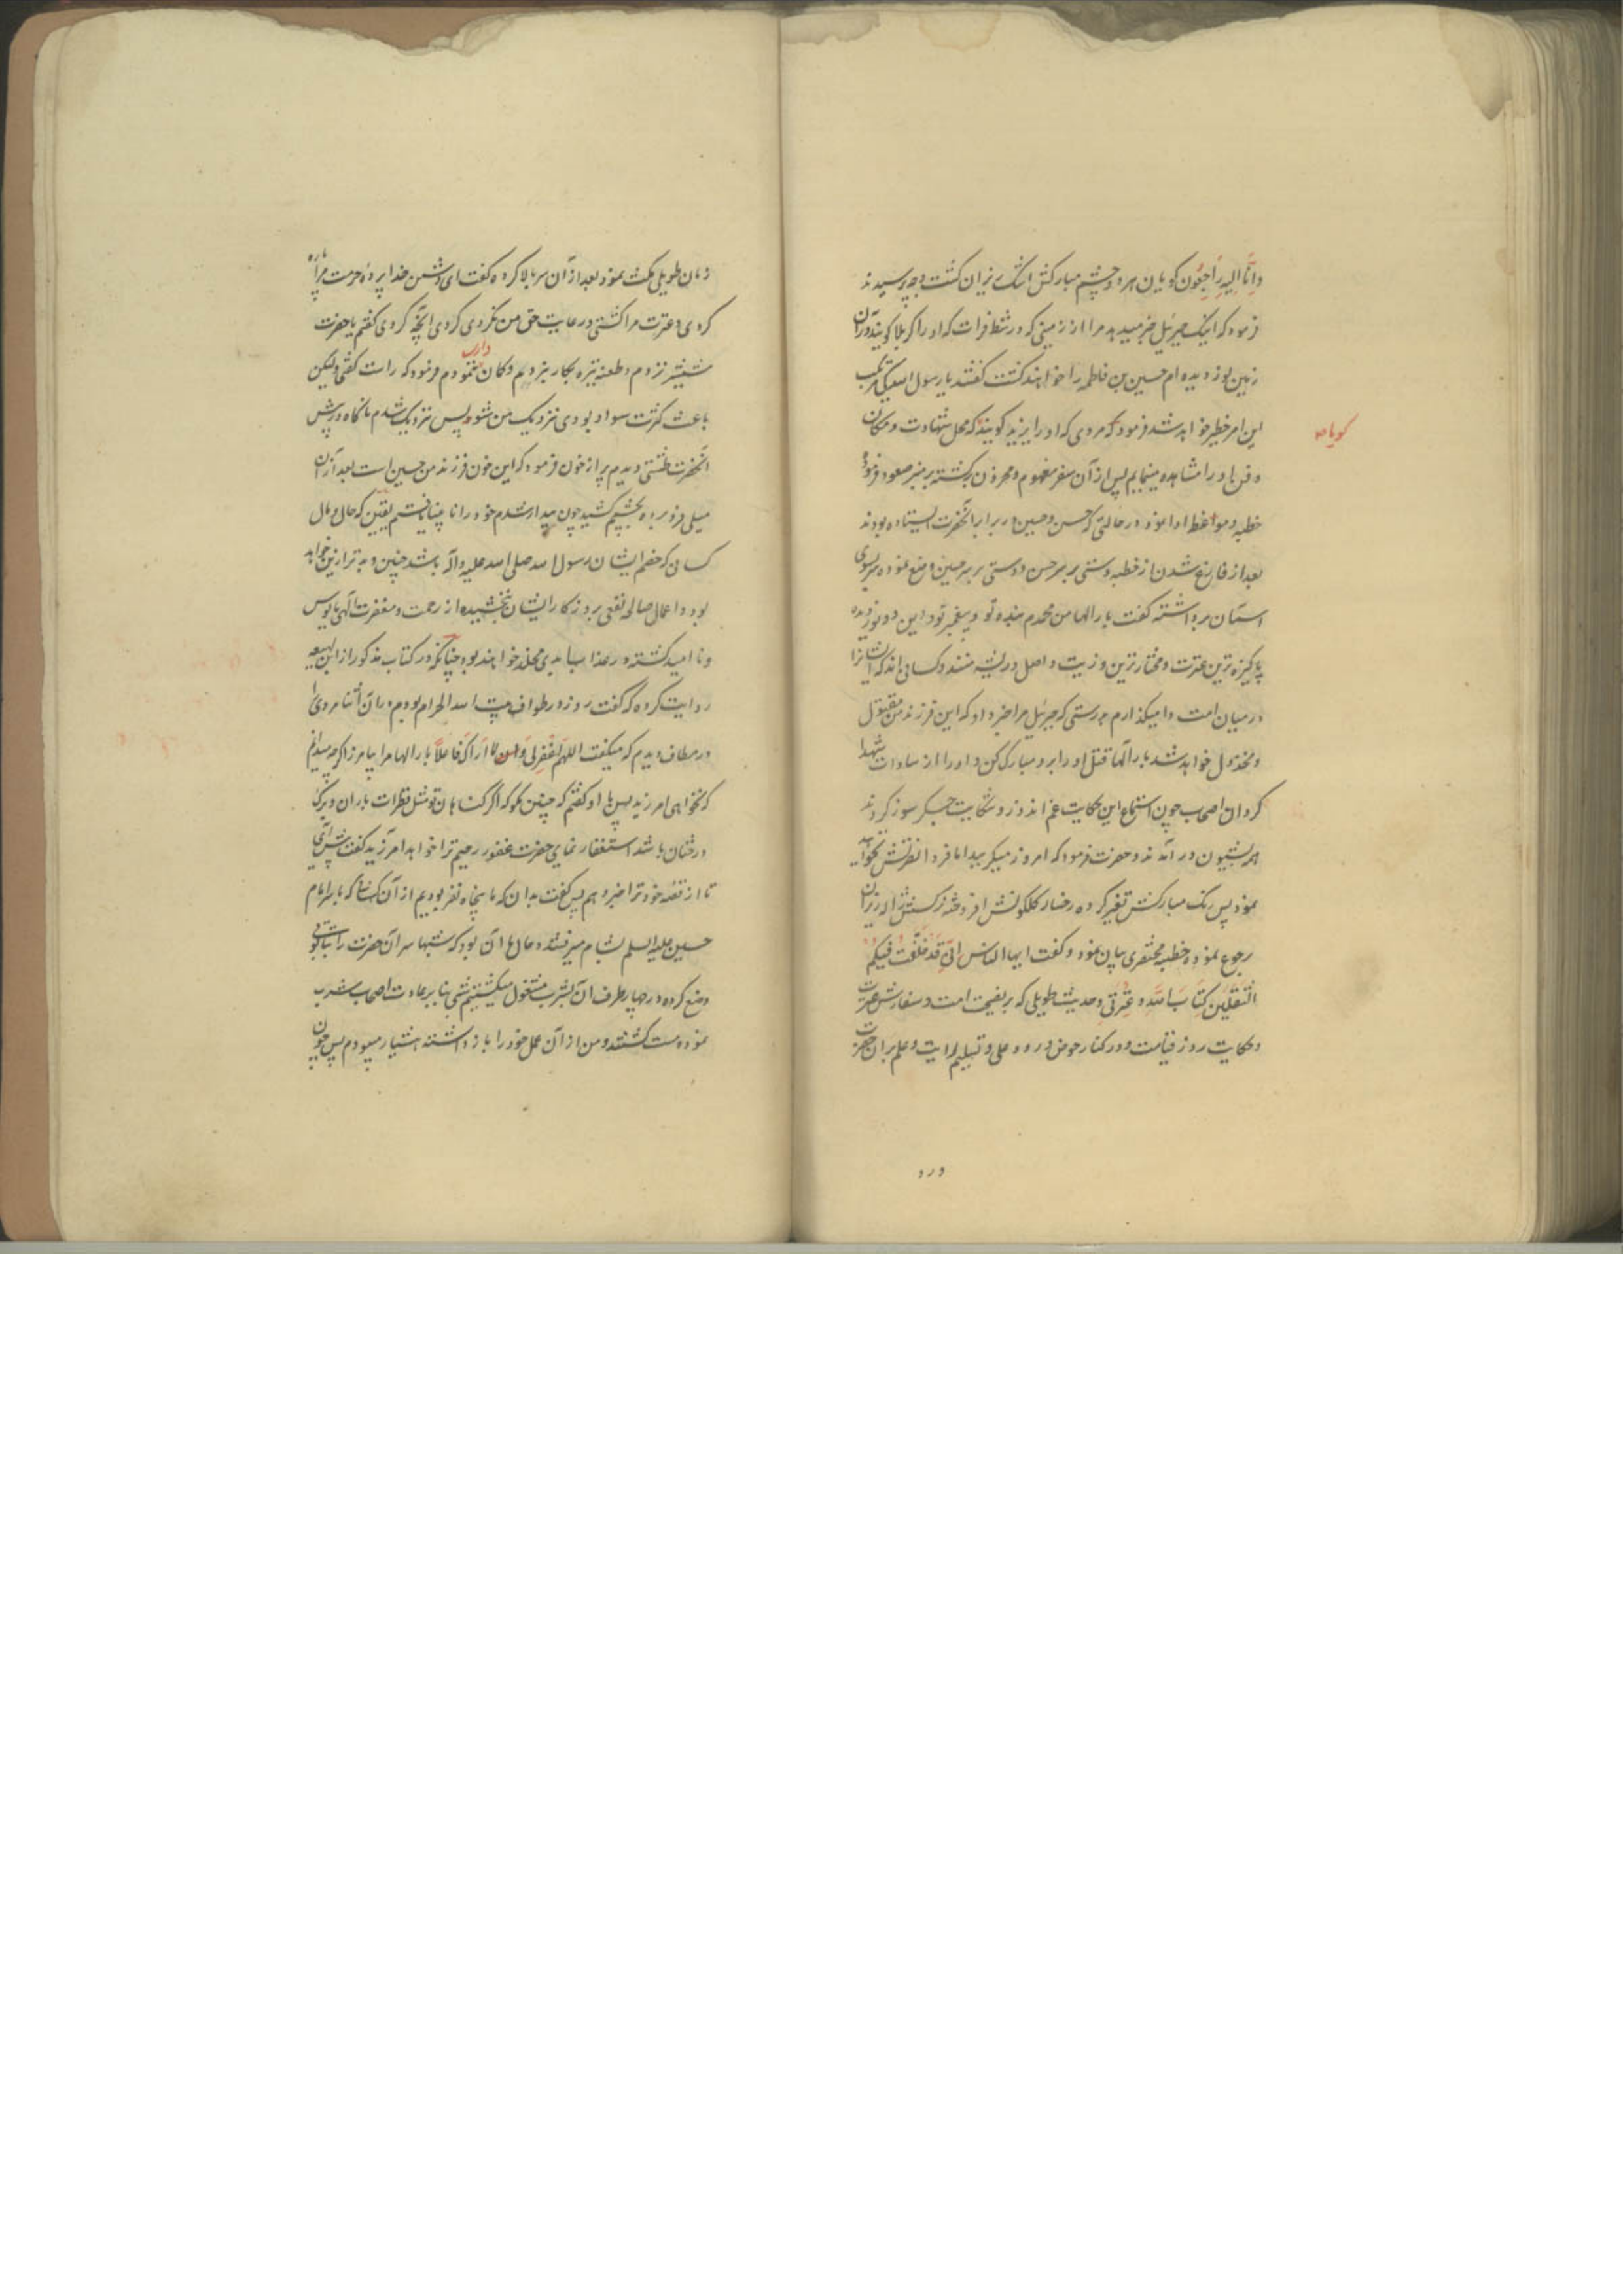 وانا الیه راجعون کویان هر دو چشم مبارکش اشک ریزان کشت وجه پرسیدند
فرمود که اینک جبرئیل خبر میدهد مرا از زمینی که در شط فرات که او را کربلا کویند در آن
زمین نور دیده ام حسین بن فاطمه را خواهند کشت کفتند یا رسول الله کی مرتکب
این امر خطیر خواهد شد فرمود که مردی که او را یزید کویند که محل شهادت و مکان
کویا
دفن او را مشاهده مینمایم پس از آن سفر مغموم و محزون برکشته بر منبر صعود فرموده
خطبه و مواعظ ادا نمود در حالتی که حسن و حسین در برابر آنحضرت ایستاده بودند
بعد از فارغ شدن از خطبه دستی بر سر حسن و دستی بر سر حسین وضع نموده سر بسوی
آسمان برداشته کفت بار الها من محمدم بنده تو و پیغمبر تو و این دو نور دیده
پاکیزه ترین عترت و مختارترین و زیت و اصل و ریشه منند و کسانی اند که ایشانرا
در میان امت وامیکذارم بدرستی که جبرئیل مرا خبر داد که این فرزند من مقتول
و مخذول خواهد شد بار الها قتل او را برو مبارک کن و او را از سادات شهدا
کردان اصحاب چون استماع این حکایت غم اندوز و شکایت جکر سوز کردند
همه بشیون در آمدند و حضرت فرمود که امروز میکریید اما فردا نظرتش نخواهید
نمود پس رنک مبارکش تغیر کرده رخسار کلکونش افروخته نرکسش ژاله ریزان
رجوع نموده خطبه مختصری بیان نمود و کفت ایها الناس انی قد خلفت فیکم
الثقلین کتاب الله و عترتی و حدیث طویلی که بر نصیحت امت و سفارش عترت
و حکایت روز قیامت و در کنار حوض ورود علی و تسلیم رایت و علم بر آن حضرت
ورد
زمان طویلی مکث نمود بعد از آن سر بالا کرده کفت ای دشمن خدا پرده حرمت مرا پاره
کردی و عترت مرا کشتی و رعایت حق من نکردی کردی آنچه کردی کفتم یا حضرت
شمشیر نزدم و طعنه نیزه بکار نبردم و کمان ننمودم فرمود که راست کفتی ولیکن
باعث کثرت سواد بودی نزدیک من شو پس نزدیک شدم ناکاه در پیش
آنحضرت طشتی دیدم پر از خون فرمود که این خون فرزند من حسین است بعد از آن
میلی فرو برده بچشمم کشید چون بیدار شدم خود را نابینا یافتم یقین که حال و مال
کسان که خصم ایشان رسول الله صلی الله علیه و آله باشد چنین و بتر ازین خواهد
بود و اعمال صالح نفعی بروز کار ایشان نبخشیده از رحمت و مغفرت الهی مایوس
و نا امید کشته در عذاب ابدی مخلد خواهند بود چنانکه در کتاب مذکور از ابن لهیعه
روایت کرده که کفت روز در طواف بیت الله الحرام بودم در آن اثنا مردی را
در مطاف دیدم که میکفت اللهم اغفرلی و لا اراک فاعلا بار الها مرا بیامرز اکرچه میدانم
که نخواهی امرزید پس با او کفتم که چنین مکو که اکر کناهان تو مثل قطرات باران و برک
درختان باشد استغفار نمای حضرت غفور رحیم ترا خواهد امرزید کفت پیش آی
تا از قصه خود ترا خبر دهم پس کفت بدان که ما پنجاه نفر بودیم از آن کسان که با سر امام
حسین علیه السلم بشام میرفتند و حال ما آن بود که شبها سر آن حضرت را بتابوتی
وضع کرده در چهار طرف آن بشرب مشغول میکشتیم شبی بنا بر عادت اصحاب شرب
نموده مست کشتند و من از آن عمل خود را باز داشته هشیار میبودم پس چون